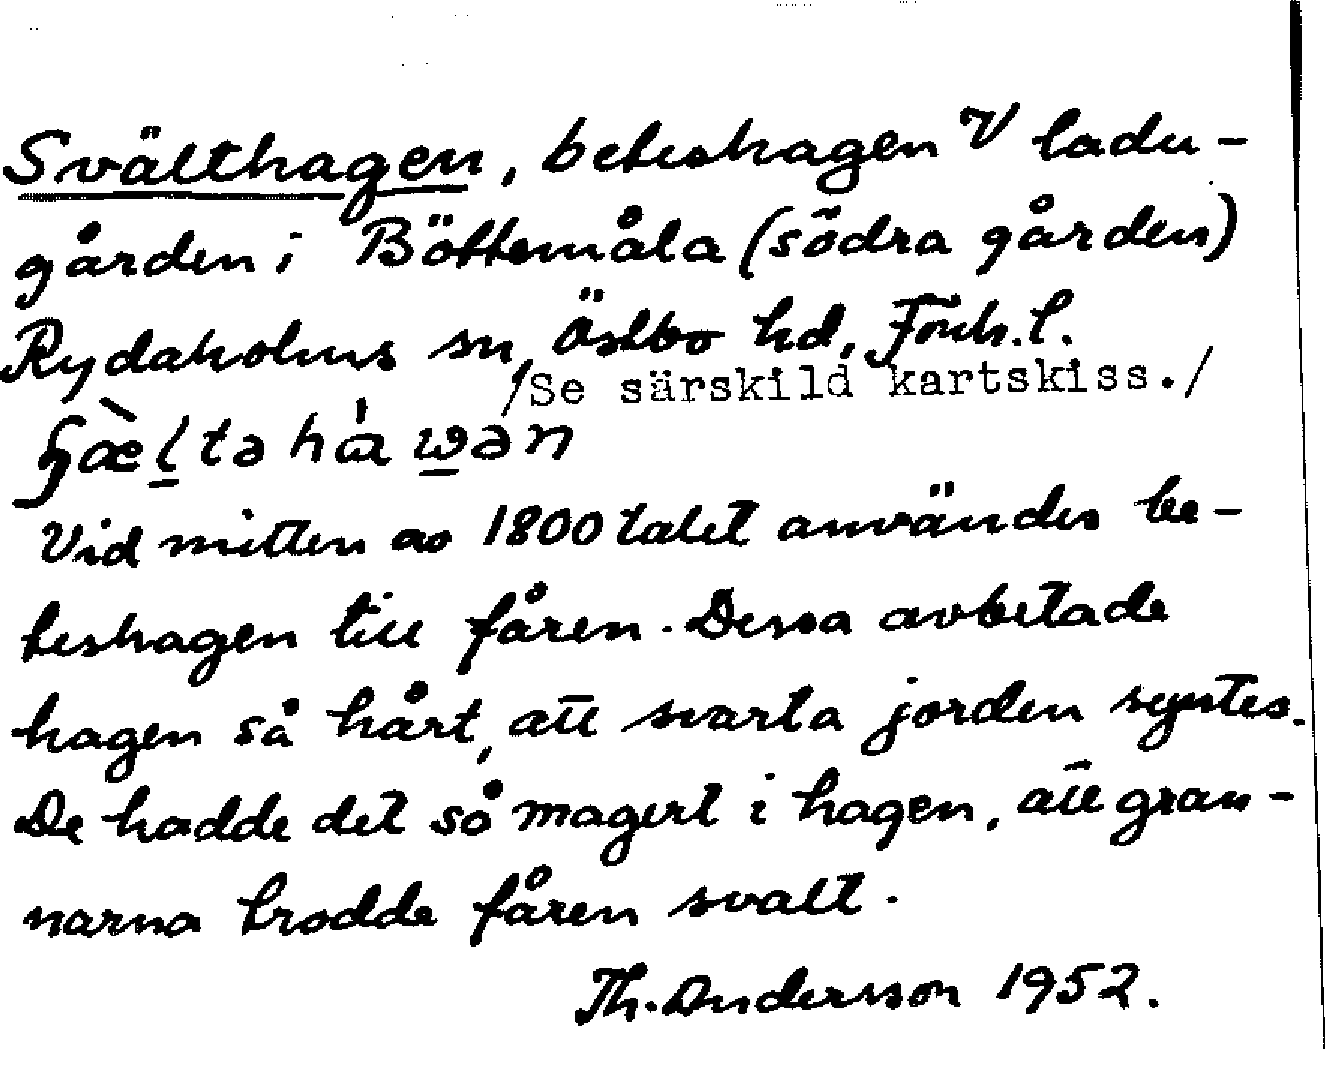 Svälthagen, beteshagen V ladu-
gården i Böttemåla (södra gården)
Rydaholms sn, Östbo hd, Jönk. l.
/Se särskild kartskiss./
Vid mitten av 1800talet användes be-
teshagen till fåren. Dessa avbetade
hagen så hårt, att svarta jorden syntes.
De hadde det så magert i hagen, att gran-
narna trodde fåren svalt.
Th. Andersson 1952.